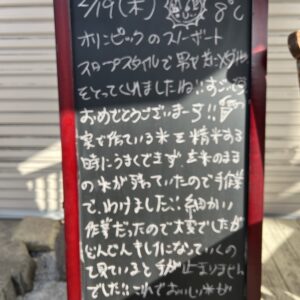 2/19(木) 8℃
オリンピックのスノーボート
スロープスタイルで男女共メダル
をとってくれましたね!!すごいです
おめでとうございまーす!!
家で作っている米を精米する
時にうまくできず玄米のまま
の米が残っていたので手作業
で、わけました!!細かい
作業だったので大変でしたが
どんどんキレイになっていくの
を見ていると手が止まりません
でした!!これでおいしい米が